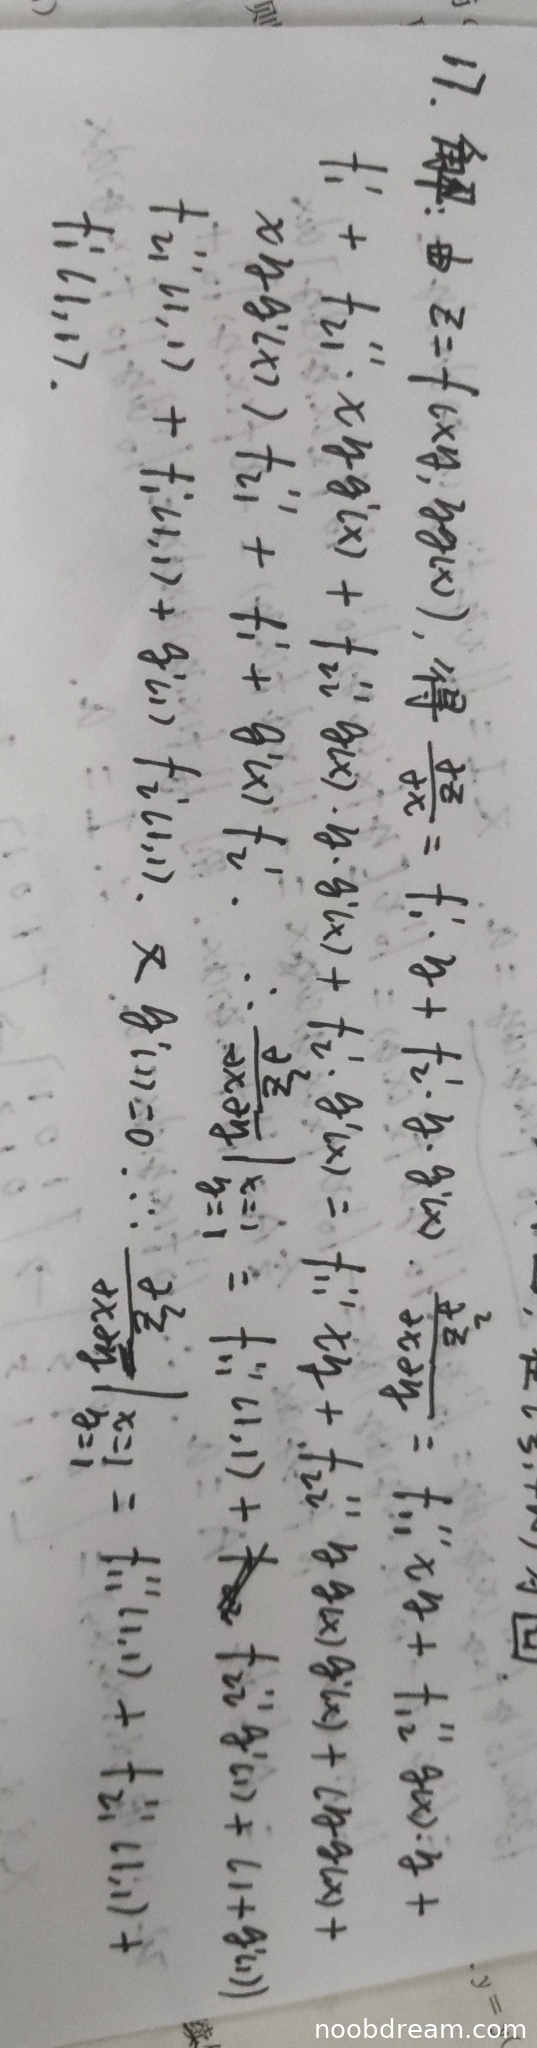 17. 解: 由 z=f(xy, yg(x)), 得 ∂z/∂x = f₁'·y + f₂'·y·g'(x). ∂²z/∂x∂y = f₁₁'' xy + f₂₁'' g(x)·y +
f₁' + f₂₁''·xyg'(x) + f₂₂'' g(x)·y·g'(x) + f₂'·g'(x) = f₁₁'' xy + f₂₂'' y g(x) g'(x) + (yg(x) +
xyg'(x)) f₂₁'' + f₁' + g'(x) f₂'. ∴ ∂²z/∂x∂y |x=1 y=1 = f₁₁''(1,1) + f₂₂'' g'(1) + (1+g'(1))
f₂₁''(1,1) + f₁'(1,1) + g'(1) f₂'(1,1). 又 g'(1)=0 ∴ ∂²z/∂x∂y |x=1 y=1 = f₁₁''(1,1) + f₂₁''(1,1) +
f₁'(1,1).
回
y =
续
noobdream.com